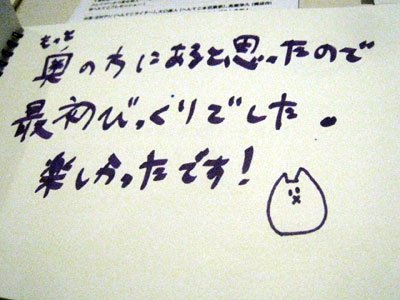 もっと
奥の方にあると思ったので
最初びっくりでした。
楽しかったです!